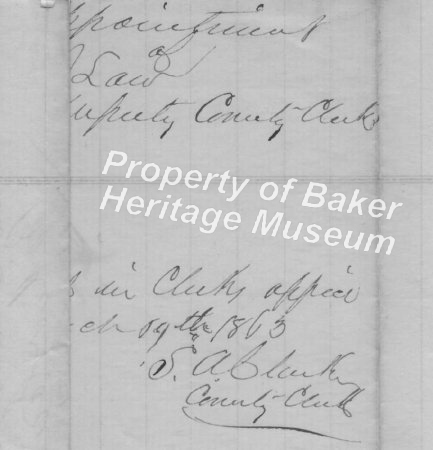 ppointment
of
Law
eputy County Clerk
Property of Baker
Heritage Museum
in Clerks office
ch 19th 1863
S. A Clarke
County Clerk